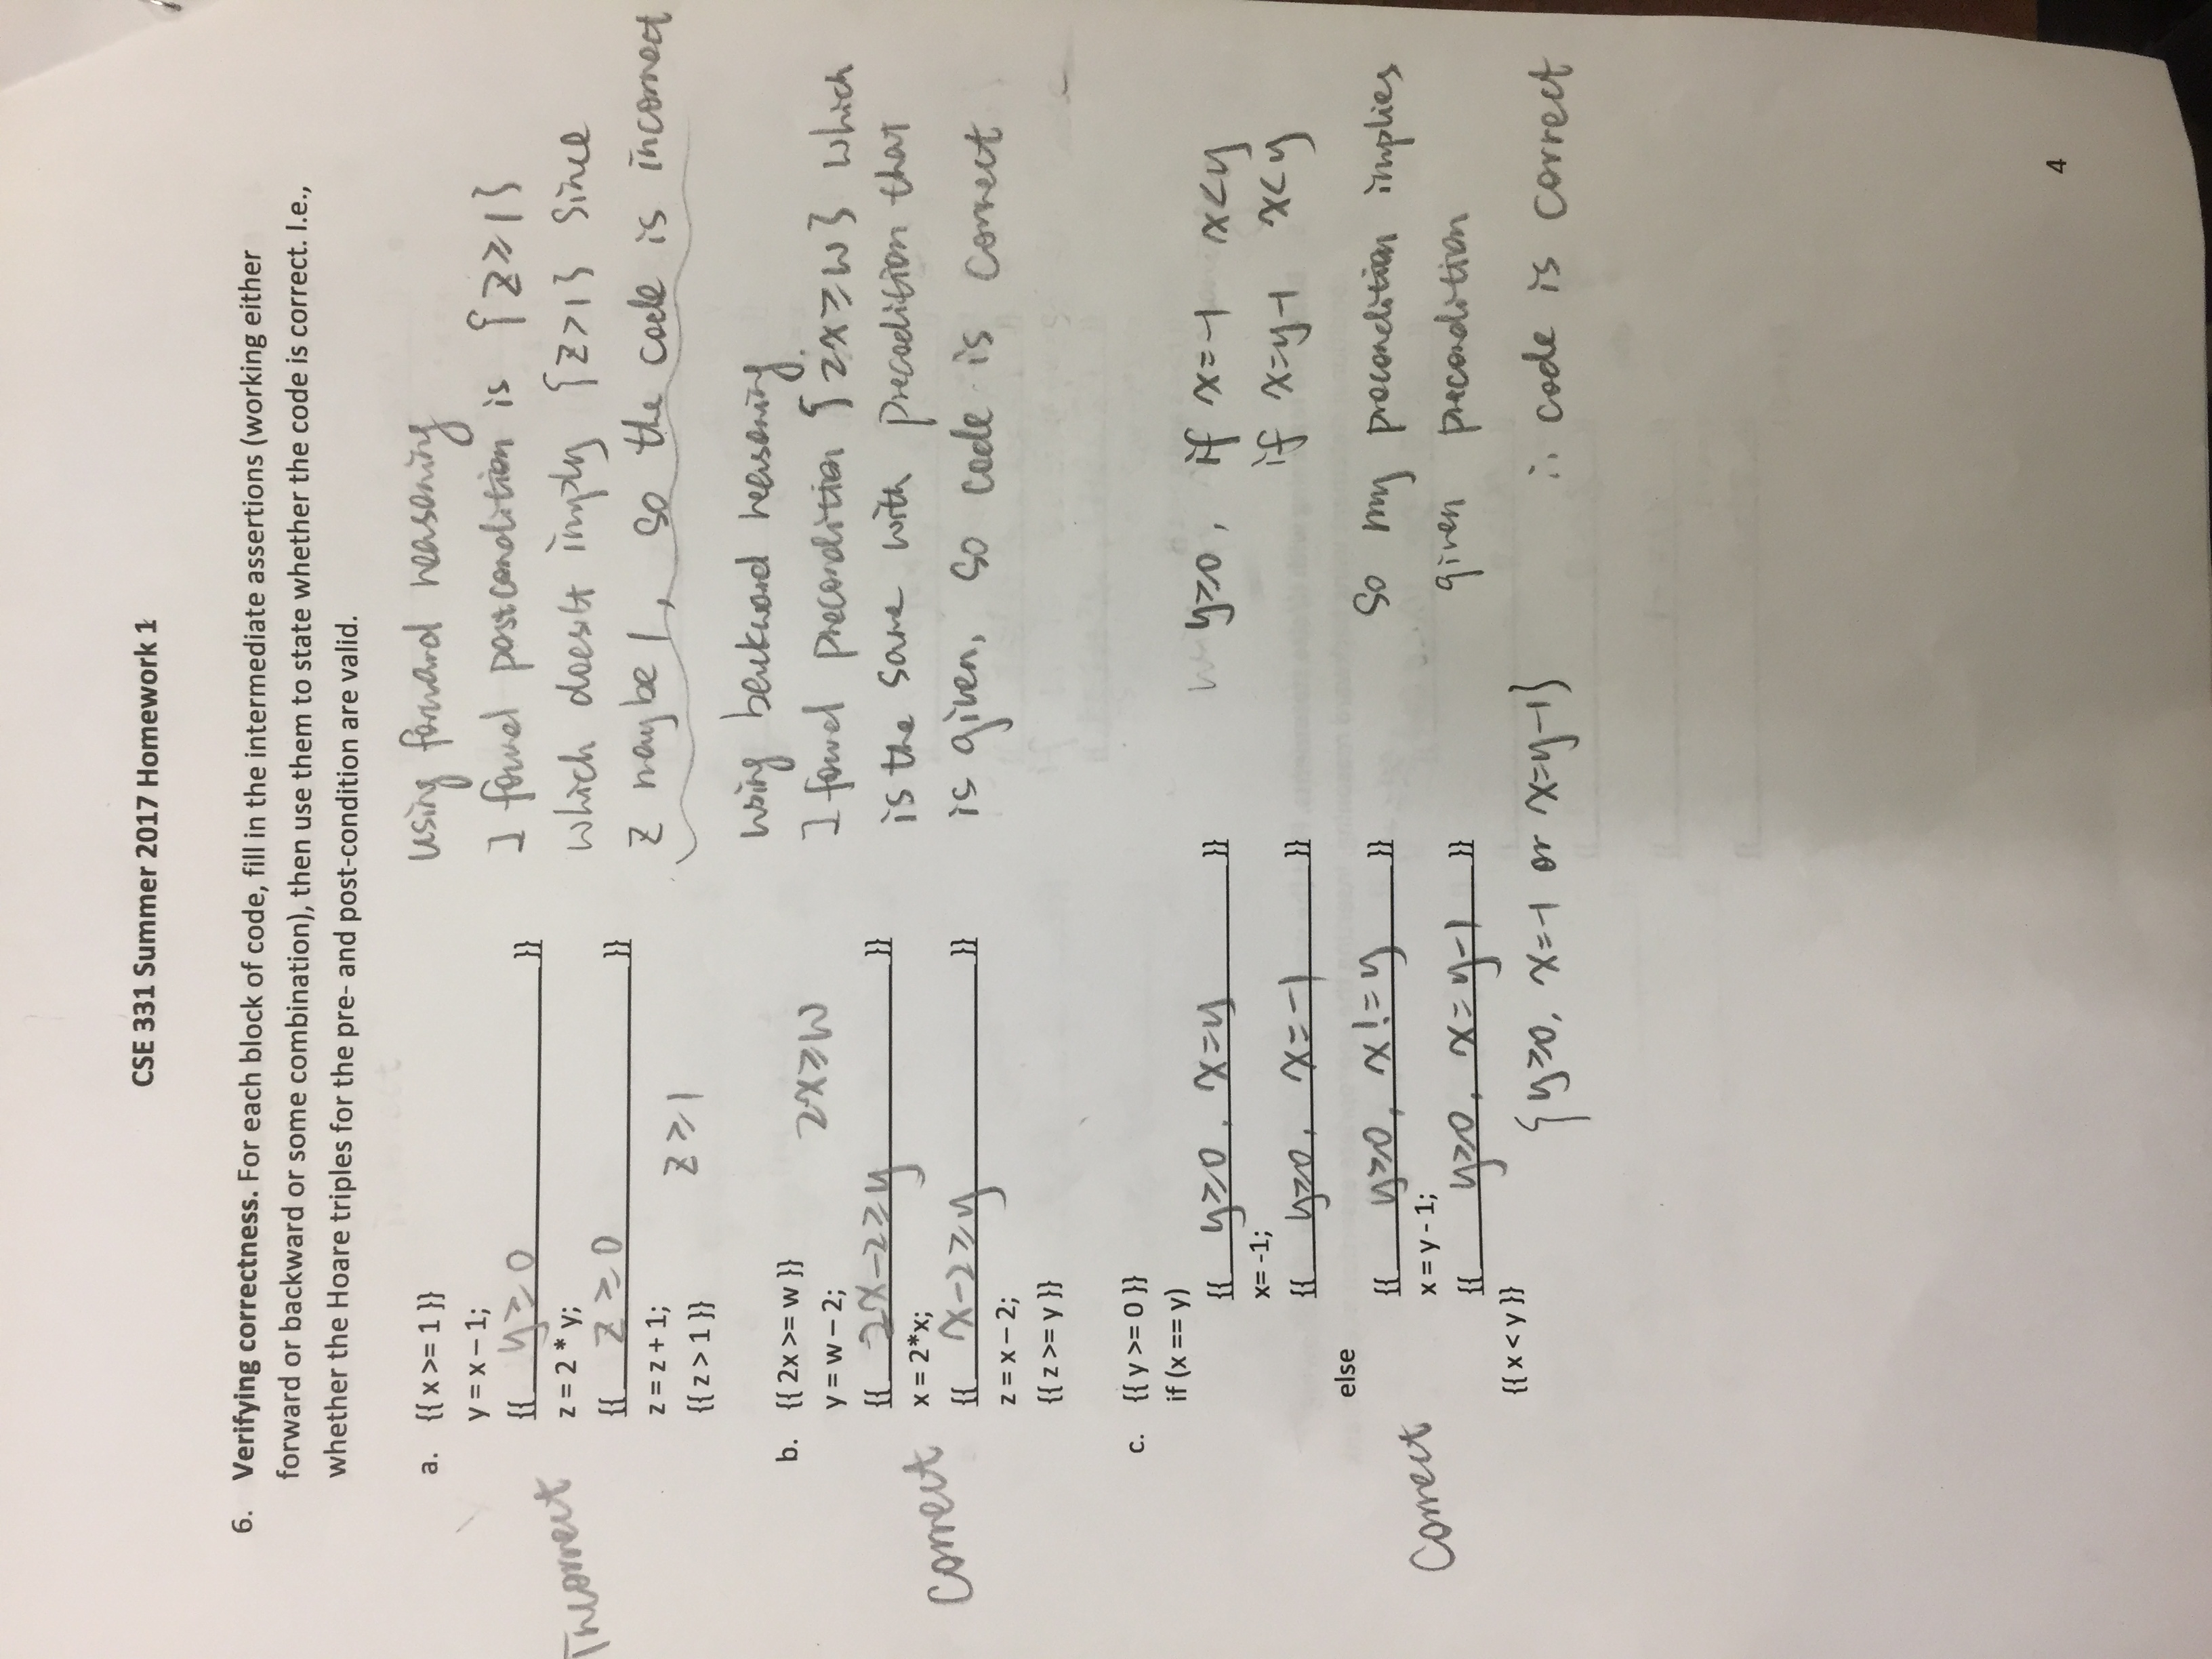 CSE 331 Summer 2017 Homework 1
6. Verifying correctness. For each block of code, fill in the intermediate assertions (working either
forward or backward or some combination), then use them to state whether the code is correct. I.e.,
whether the Hoare triples for the pre- and post-condition are valid.
a. {{ x >= 1 }}
y = x – 1;
{{ y ≥ 0 }}
z = 2 * y;
{{ z ≥ 0 }}
z = z + 1;
{{ z > 1 }}
z ≥ 1
Incorrect
using forward reasoning
I found postcondition is {z ≥ 1}
which doesn't imply {z > 1} since
z may be 1, so the code is incorrect
b. {{ 2x >= w }}
2x ≥ w
y = w – 2;
{{ 2x-2 ≥ y }}
x = 2*x;
{{ x-2 ≥ y }}
z = x – 2;
{{ z >= y }}
Correct
using backward reasoning
I found precondition {2x ≥ w} which
is the same with precodition that
is given, so code is correct
c. {{ y >= 0 }}
if (x == y)
{{ y ≥ 0, x = y }}
x= -1;
{{ y ≥ 0, x = -1 }}
else
{{ y ≥ 0, x != y }}
x = y - 1;
{{ y ≥ 0, x = y-1 }}
{{ x < y }}
{y ≥ 0, x = -1 or x = y-1}
Correct
y ≥ 0, if x = -1 x < y
if x = y-1 x < y
So my precondition implies
given precondition
∴ code is correct
4